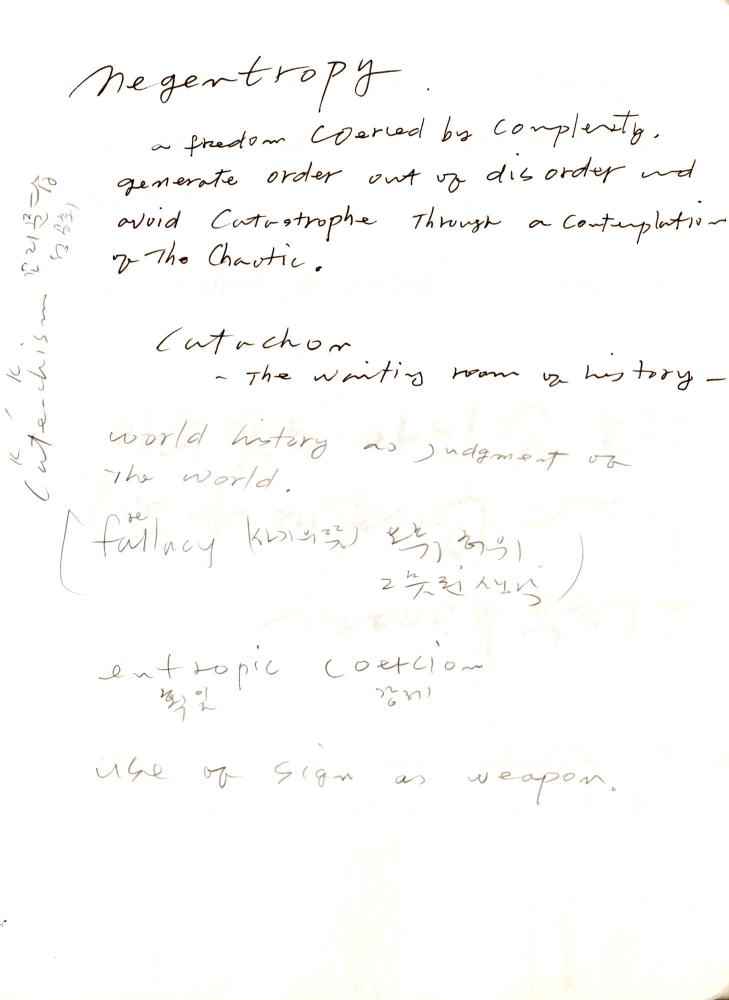 negentropy.
a freedom coerced by complexity.
generate order out of disorder and
avoid Catastrophe Through a Contemplation
of The Chaotic.
Catachon
- The waiting room of history -
world history as judgment of
The world.
(fallacy 허위
그릇된 생각)
entropic coercion
획일 강제
use of sign as weapon.
Catechism 교리문답
K K